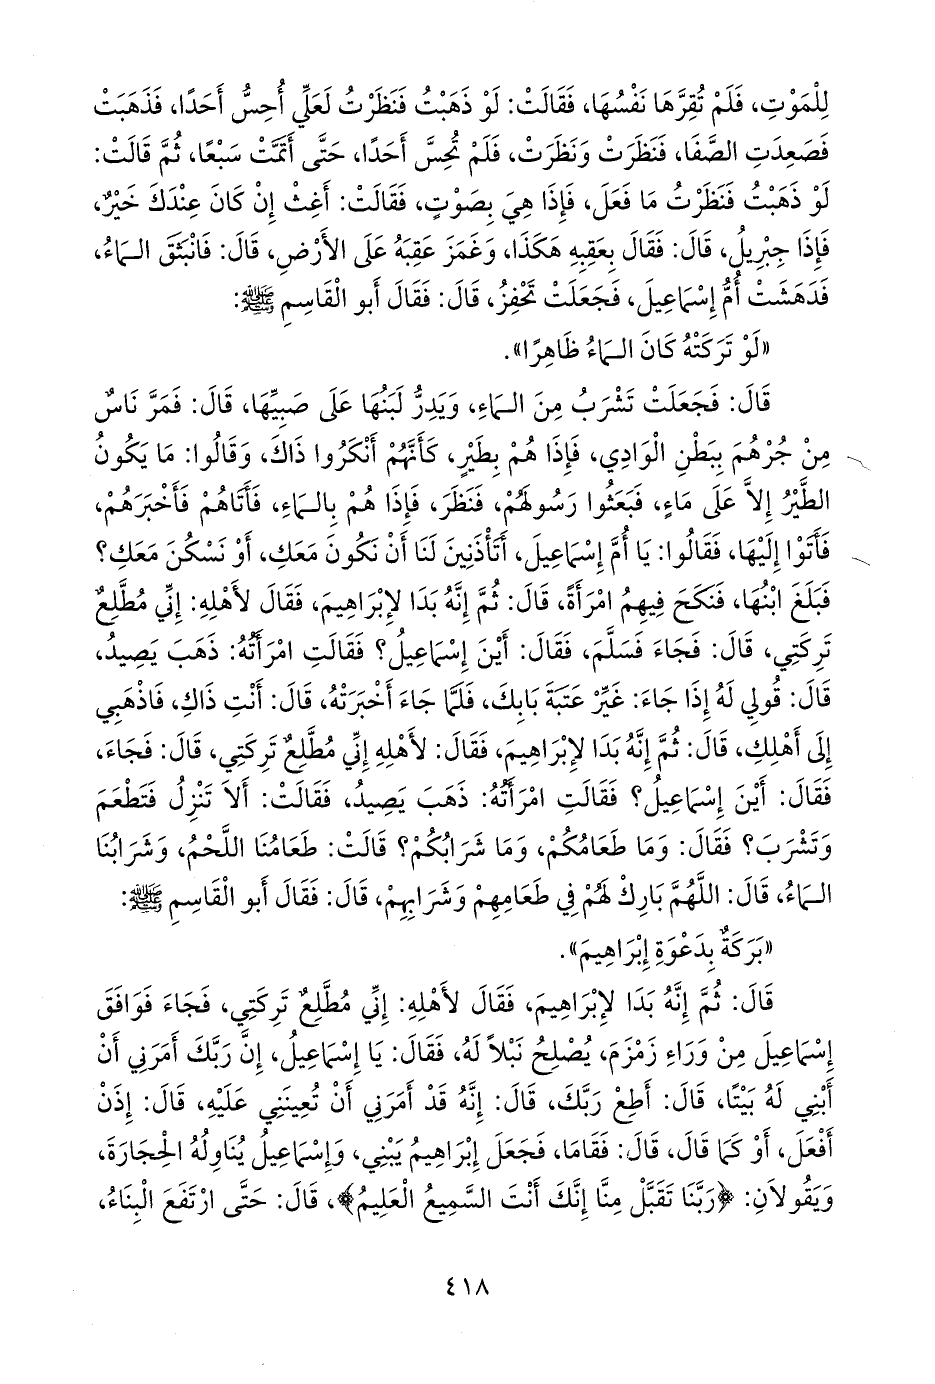 لِلْمَوْتِ، فَلَمْ تُقِرَّهَا نَفْسُهَا، فَقَالَتْ: لَوْ ذَهَبْتُ فَنَظَرْتُ لَعَلِّي أُحِسُّ أَحَدًا، فَذَهَبَتْ
فَصَعِدَتِ الصَّفَا، فَنَظَرَتْ وَنَظَرَتْ، فَلَمْ تُحِسَّ أَحَدًا، حَتَّى أَتَمَّتْ سَبْعًا، ثُمَّ قَالَتْ:
لَوْ ذَهَبْتُ فَنَظَرْتُ مَا فَعَلَ، فَإِذَا هِيَ بِصَوْتٍ، فَقَالَتْ: أَغِثْ إِنْ كَانَ عِنْدَكَ خَيْرٌ،
فَإِذَا جِبْرِيلُ، قَالَ: فَقَالَ بِعَقِبِهِ هَكَذَا، وَغَمَزَ عَقِبَهُ عَلَى الأَرْضِ، قَالَ: فَانْبَثَقَ الـمَاءُ،
فَدَهَشَتْ أُمُّ إِسْمَاعِيلَ، فَجَعَلَتْ تَحْفِزُ، قَالَ: فَقَالَ أَبو الْقَاسِمِ ﷺ:
«لَوْ تَرَكَتْهُ كَانَ الـمَاءُ ظَاهِرًا».
قَالَ: فَجَعَلَتْ تَشْرَبُ مِنَ الـمَاءِ، وَيَدِرُّ لَبَنُهَا عَلَى صَبِيِّهَا، قَالَ: فَمَرَّ نَاسٌ
مِنْ جُرْهُمَ بِبَطْنِ الْوَادِي، فَإِذَا هُمْ بِطَيْرٍ، كَأَنَّهُمْ أَنْكَرُوا ذَاكَ، وَقَالُوا: مَا يَكُونُ
الطَّيْرُ إِلاَّ عَلَى مَاءٍ، فَبَعَثُوا رَسُولَهُمْ، فَنَظَرَ، فَإِذَا هُمْ بِالـمَاءِ، فَأَتَاهُمْ فَأَخْبَرَهُمْ،
فَأَتَوْا إِلَيْهَا، فَقَالُوا: يَا أُمَّ إِسْمَاعِيلَ، أَتَأْذَنِينَ لَنَا أَنْ نَكُونَ مَعَكِ، أَوْ نَسْكُنَ مَعَكِ؟
فَبَلَغَ ابْنُهَا، فَنَكَحَ فِيهِمُ امْرَأَةً، قَالَ: ثُمَّ إِنَّهُ بَدَا لِإِبْرَاهِيمَ، فَقَالَ لأَهْلِهِ: إِنِّي مُطَّلِعٌ
تَرِكَتِي، قَالَ: فَجَاءَ فَسَلَّمَ، فَقَالَ: أَيْنَ إِسْمَاعِيلُ؟ فَقَالَتِ امْرَأَتُهُ: ذَهَبَ يَصِيدُ،
قَالَ: قُولِي لَهُ إِذَا جَاءَ: غَيِّرْ عَتَبَةَ بَابِكَ، فَلَمَّا جَاءَ أَخْبَرَتْهُ، قَالَ: أَنْتِ ذَاكِ، فَاذْهَبِي
إِلَى أَهْلِكِ، قَالَ: ثُمَّ إِنَّهُ بَدَا لِإِبْرَاهِيمَ، فَقَالَ: لأَهْلِهِ إِنِّي مُطَّلِعٌ تَرِكَتِي، قَالَ: فَجَاءَ،
فَقَالَ: أَيْنَ إِسْمَاعِيلُ؟ فَقَالَتِ امْرَأَتُهُ: ذَهَبَ يَصِيدُ، فَقَالَتْ: أَلاَ تَنْزِلُ فَتَطْعَمَ
وَتَشْرَبَ؟ فَقَالَ: وَمَا طَعَامُكُمْ، وَمَا شَرَابُكُمْ؟ قَالَتْ: طَعَامُنَا اللَّحْمُ، وَشَرَابُنَا
الـمَاءُ، قَالَ: اللَّهُمَّ بَارِكْ لَهُمْ فِي طَعَامِهِمْ وَشَرَابِهِمْ، قَالَ: فَقَالَ أَبو الْقَاسِمِ ﷺ:
«بَرَكَةٌ بِدَعْوَةِ إِبْرَاهِيمَ».
قَالَ: ثُمَّ إِنَّهُ بَدَا لِإِبْرَاهِيمَ، فَقَالَ لأَهْلِهِ: إِنِّي مُطَّلِعٌ تَرِكَتِي، فَجَاءَ فَوَافَقَ
إِسْمَاعِيلَ مِنْ وَرَاءِ زَمْزَمَ، يُصْلِحُ نَبْلاً لَهُ، فَقَالَ: يَا إِسْمَاعِيلُ، إِنَّ رَبَّكَ أَمَرَنِي أَنْ
أَبْنِي لَهُ بَيْتًا، قَالَ: أَطِعْ رَبَّكَ، قَالَ: إِنَّهُ قَدْ أَمَرَنِي أَنْ تُعِينَنِي عَلَيْهِ، قَالَ: إِذَنْ
أَفْعَلَ، أَوْ كَمَا قَالَ، قَالَ: فَقَامَا، فَجَعَلَ إِبْرَاهِيمُ يَبْنِي، وَإِسْمَاعِيلُ يُنَاوِلُهُ الْحِجَارَةَ،
وَيَقُولاَنِ: ﴿رَبَّنَا تَقَبَّلْ مِنَّا إِنَّكَ أَنْتَ السَّمِيعُ الْعَلِيمُ﴾، قَالَ: حَتَّى ارْتَفَعَ الْبِنَاءُ،
٤١٨